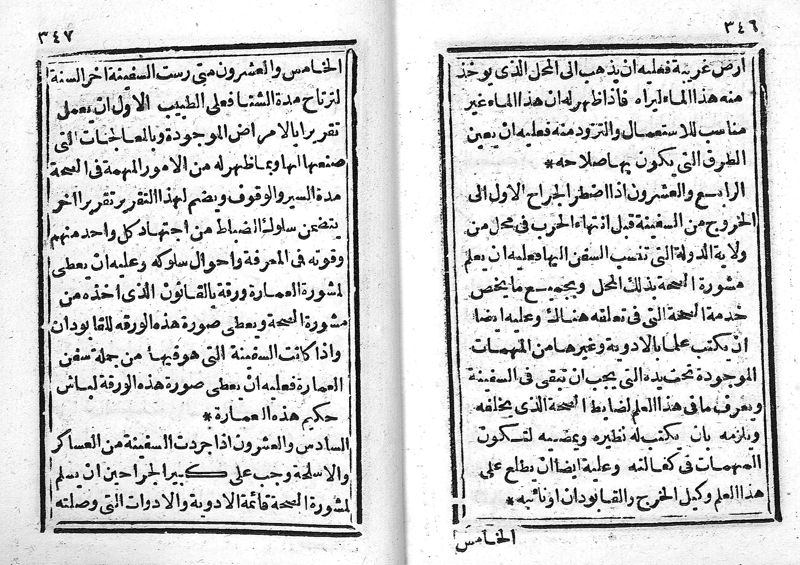 ٣٤٦
ارض غريبة فعليه ان يذهب الى المحل الذى يوخذ
منه هذا الماء ليراه فاذا ظهر له ان هذا الماء غير
مناسب للاستعمال والتزود منه فعليه ان يعين
الطرق التى يكون بها صلاحه *
الرابع والعشرون اذا اضطر الجراح الاول الى
الخروج من السفينة قبل انتهاء الحرب فى محل من
ولاية الدولة التى تنسب السفن اليها فعليه ان يعلم
مشورة الصحة بذلك المحل وبجميع ما يخص
خدمة الصحة التى فى تعلقه هناك وعليه ايضا
ان يكتب علما بالادوية وغيرها من المهمات
الموجودة تحت يده التى يجب ان تبقى فى السفينة
ويعرف ما فى هذا العلم لضابط الصحة الذى يخلفه
ويلزمه بان يكتب له نظيره ويمضيه لتسكون
المهمات فى كفالته وعليه ايضا ان يطلع على
هذا العلم وكيل الخرج والقابودان او نائبه *
الخامس
٣٤٧
الخامس والعشرون متى رست السفينة آخر السنة
لترتاح مدة الشتا فعلى الطبيب الاول ان يعمل
تقريرا بالامراض الموجودة وبالمعالجات التى
صنعها لها وبما ظهر له من الامور المهمة فى الصحة
مدة السير والوقوف ويضم لهذا التقرير تقريرا آخر
يتضمن سلوك الضباط من اجتهاد كل واحد منهم
وقوته فى المعرفة واحوال سلوكه وعليه ان يعطى
لمشورة العمارة ورقة بالقانون الذى اخذه من
مشورة الصحة ويعطى صورة هذه الورقه للقابودان
واذا كانت السفينة التى هو فيها من جملة سفن
العمارة فعليه ان يعطى صورة هذه الورقة لباش
حكيم هذه العمارة *
السادس والعشرون اذا جردت السفينة من العساكر
والاسلحة وجب على كبير الجراحين ان يسلم
لمشورة الصحة قائمة الادوية والادوات التى وصلته